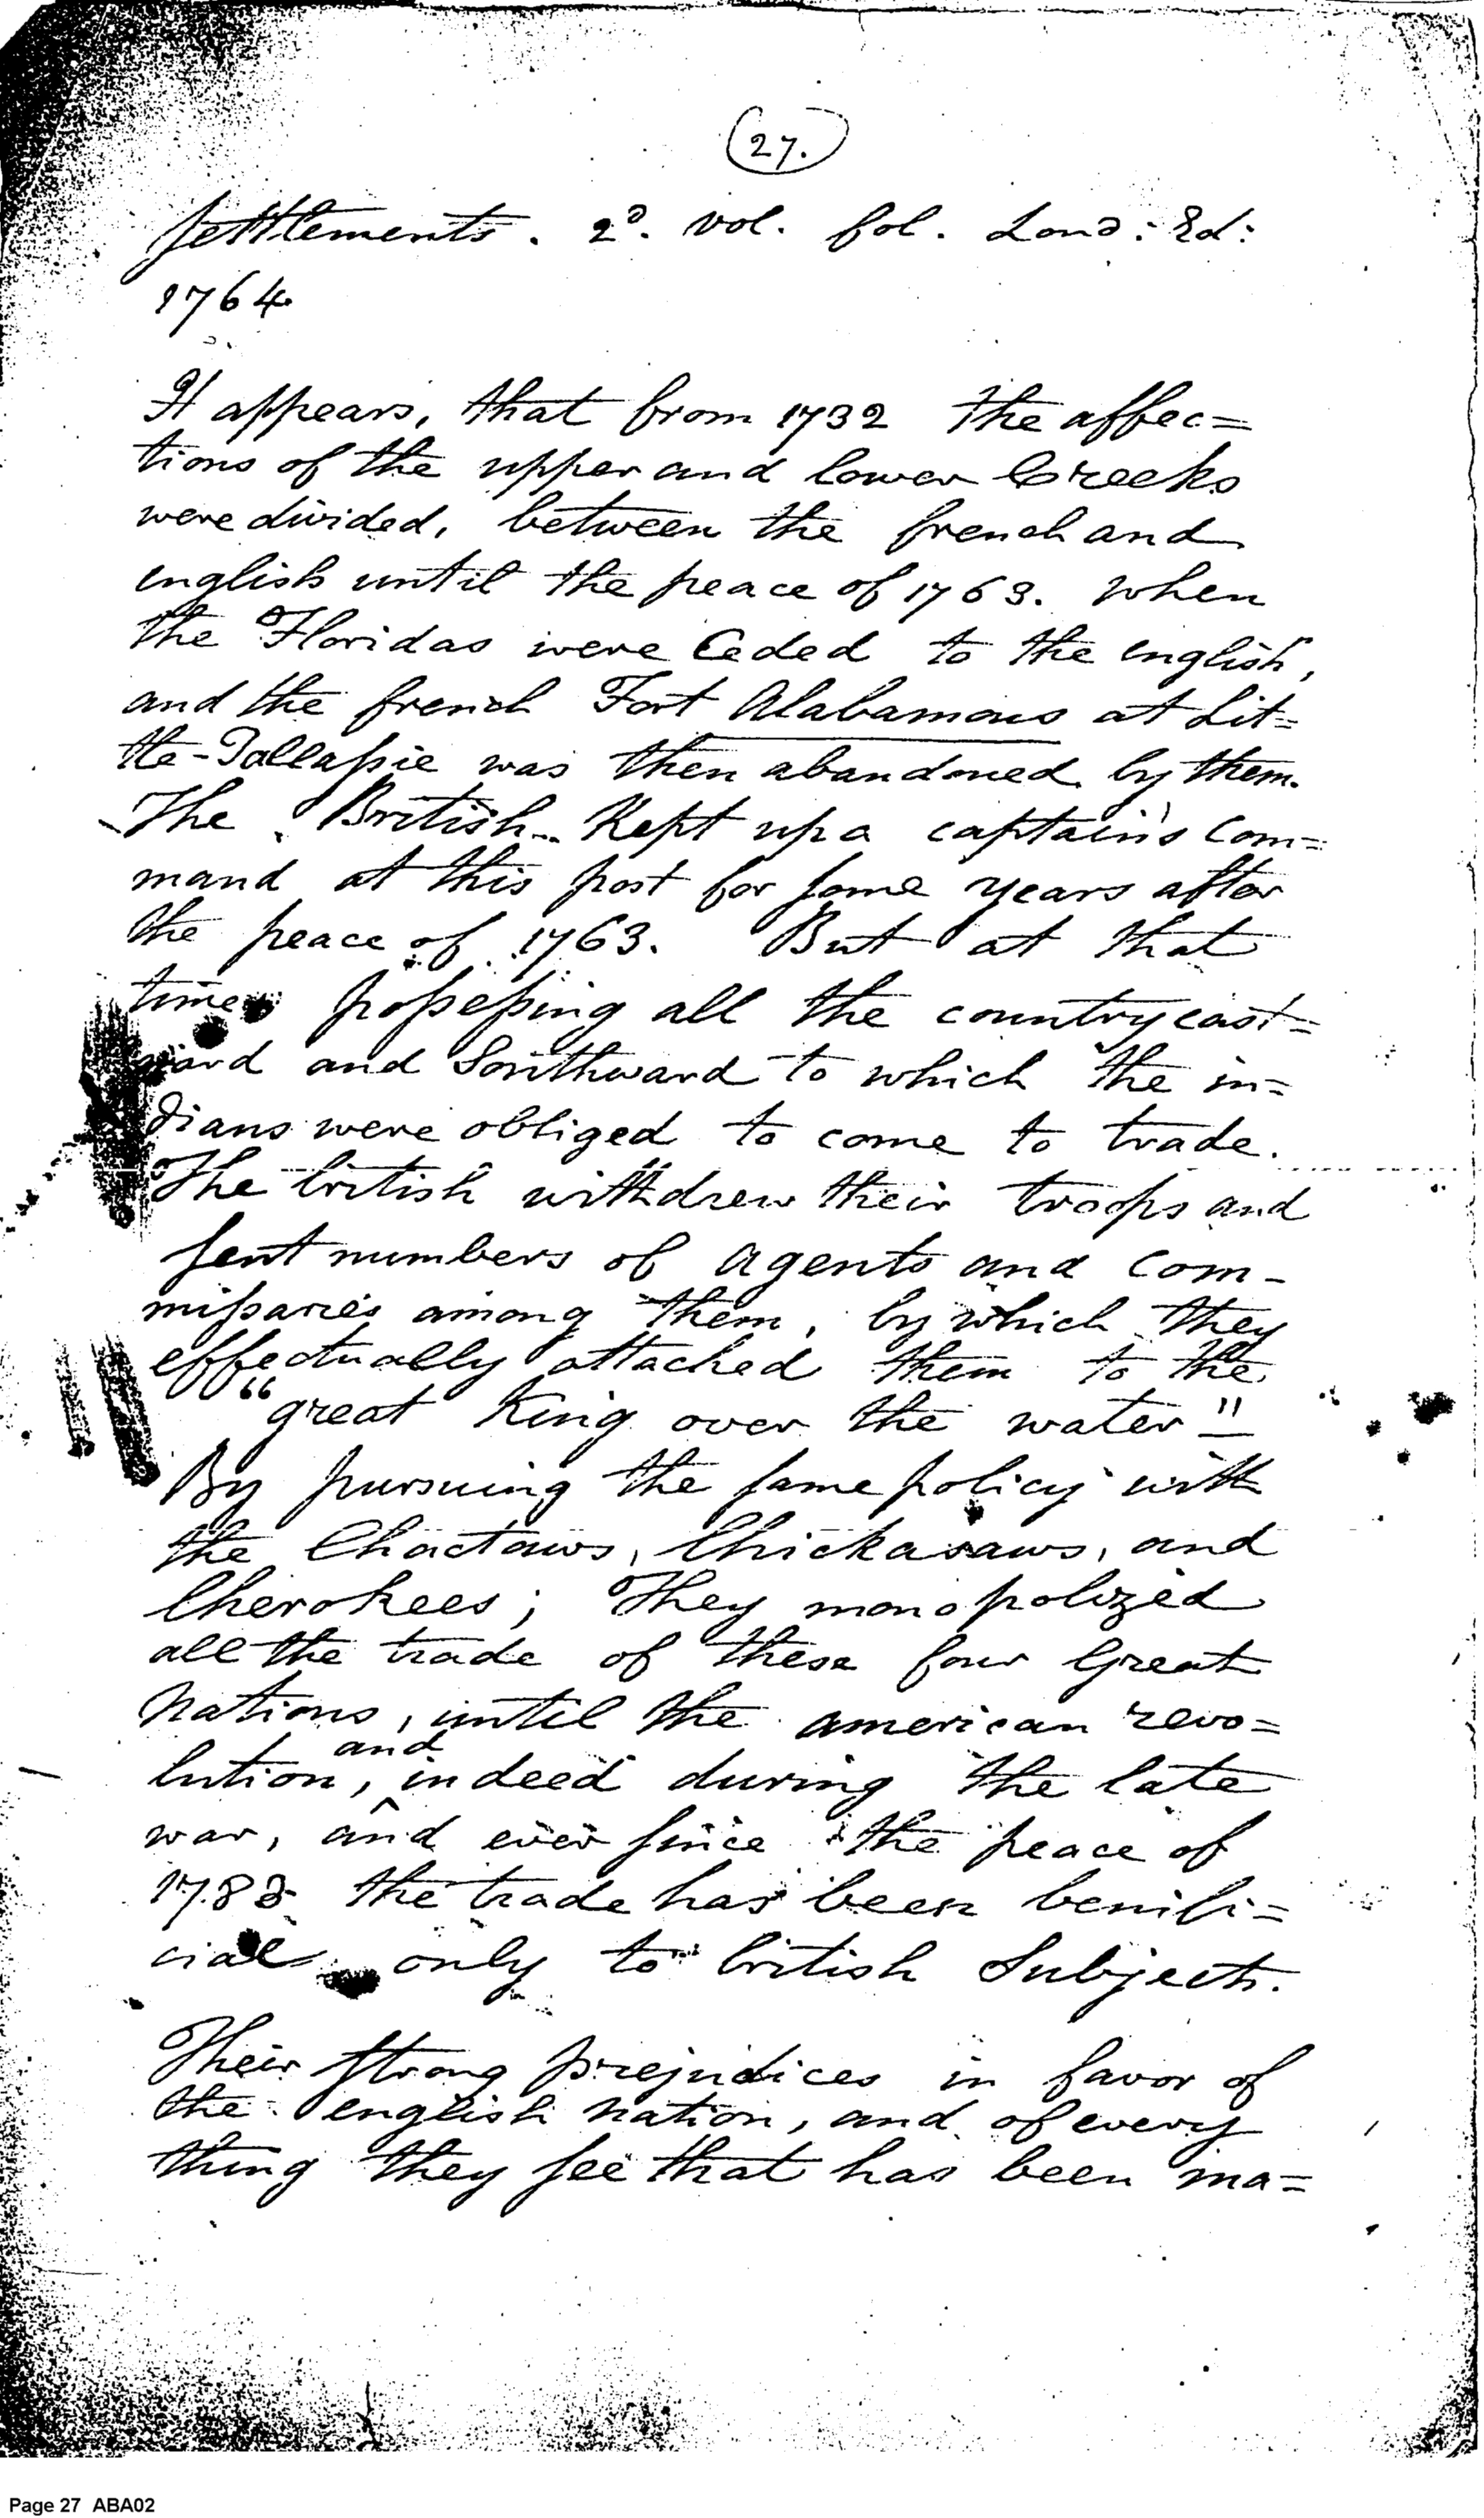 (27.)
Settlements. 2d. vol. fol. Lond: Ed:
1764
It appears, that from 1732 the affec=
tions of the upper and lower Creeks
were divided, between the french and
english until the peace of 1763. when
the Floridas were Ceded to the english,
and the french Fort Alabamous at Lit=
tle-Tallassie was then abandoned by them.
The British Kept up a captain's Com=
mand at this post for some years after
the peace of 1763. But at that
time possessing all the country east=
ward and Southward to which the in=
dians were obliged to come to trade.
The british withdrew their troops and
sent numbers of agents and com-
missaries among them, by which they
effectually attached them to the
"great King over the water"
By pursuing the same policy with
the Chactaws, Chickasaws, and
Cherokees; They monopolized
all the trade of these four Great
Nations, until the american revo=
and
lution, indeed during the late
war, and ever since the peace of
1783 the trade has been benifi=
cial only to british Subjects.
Their strong prejudices in favor of
the english nation, and of every
thing they see that has been ma=
Page 27 ABA02